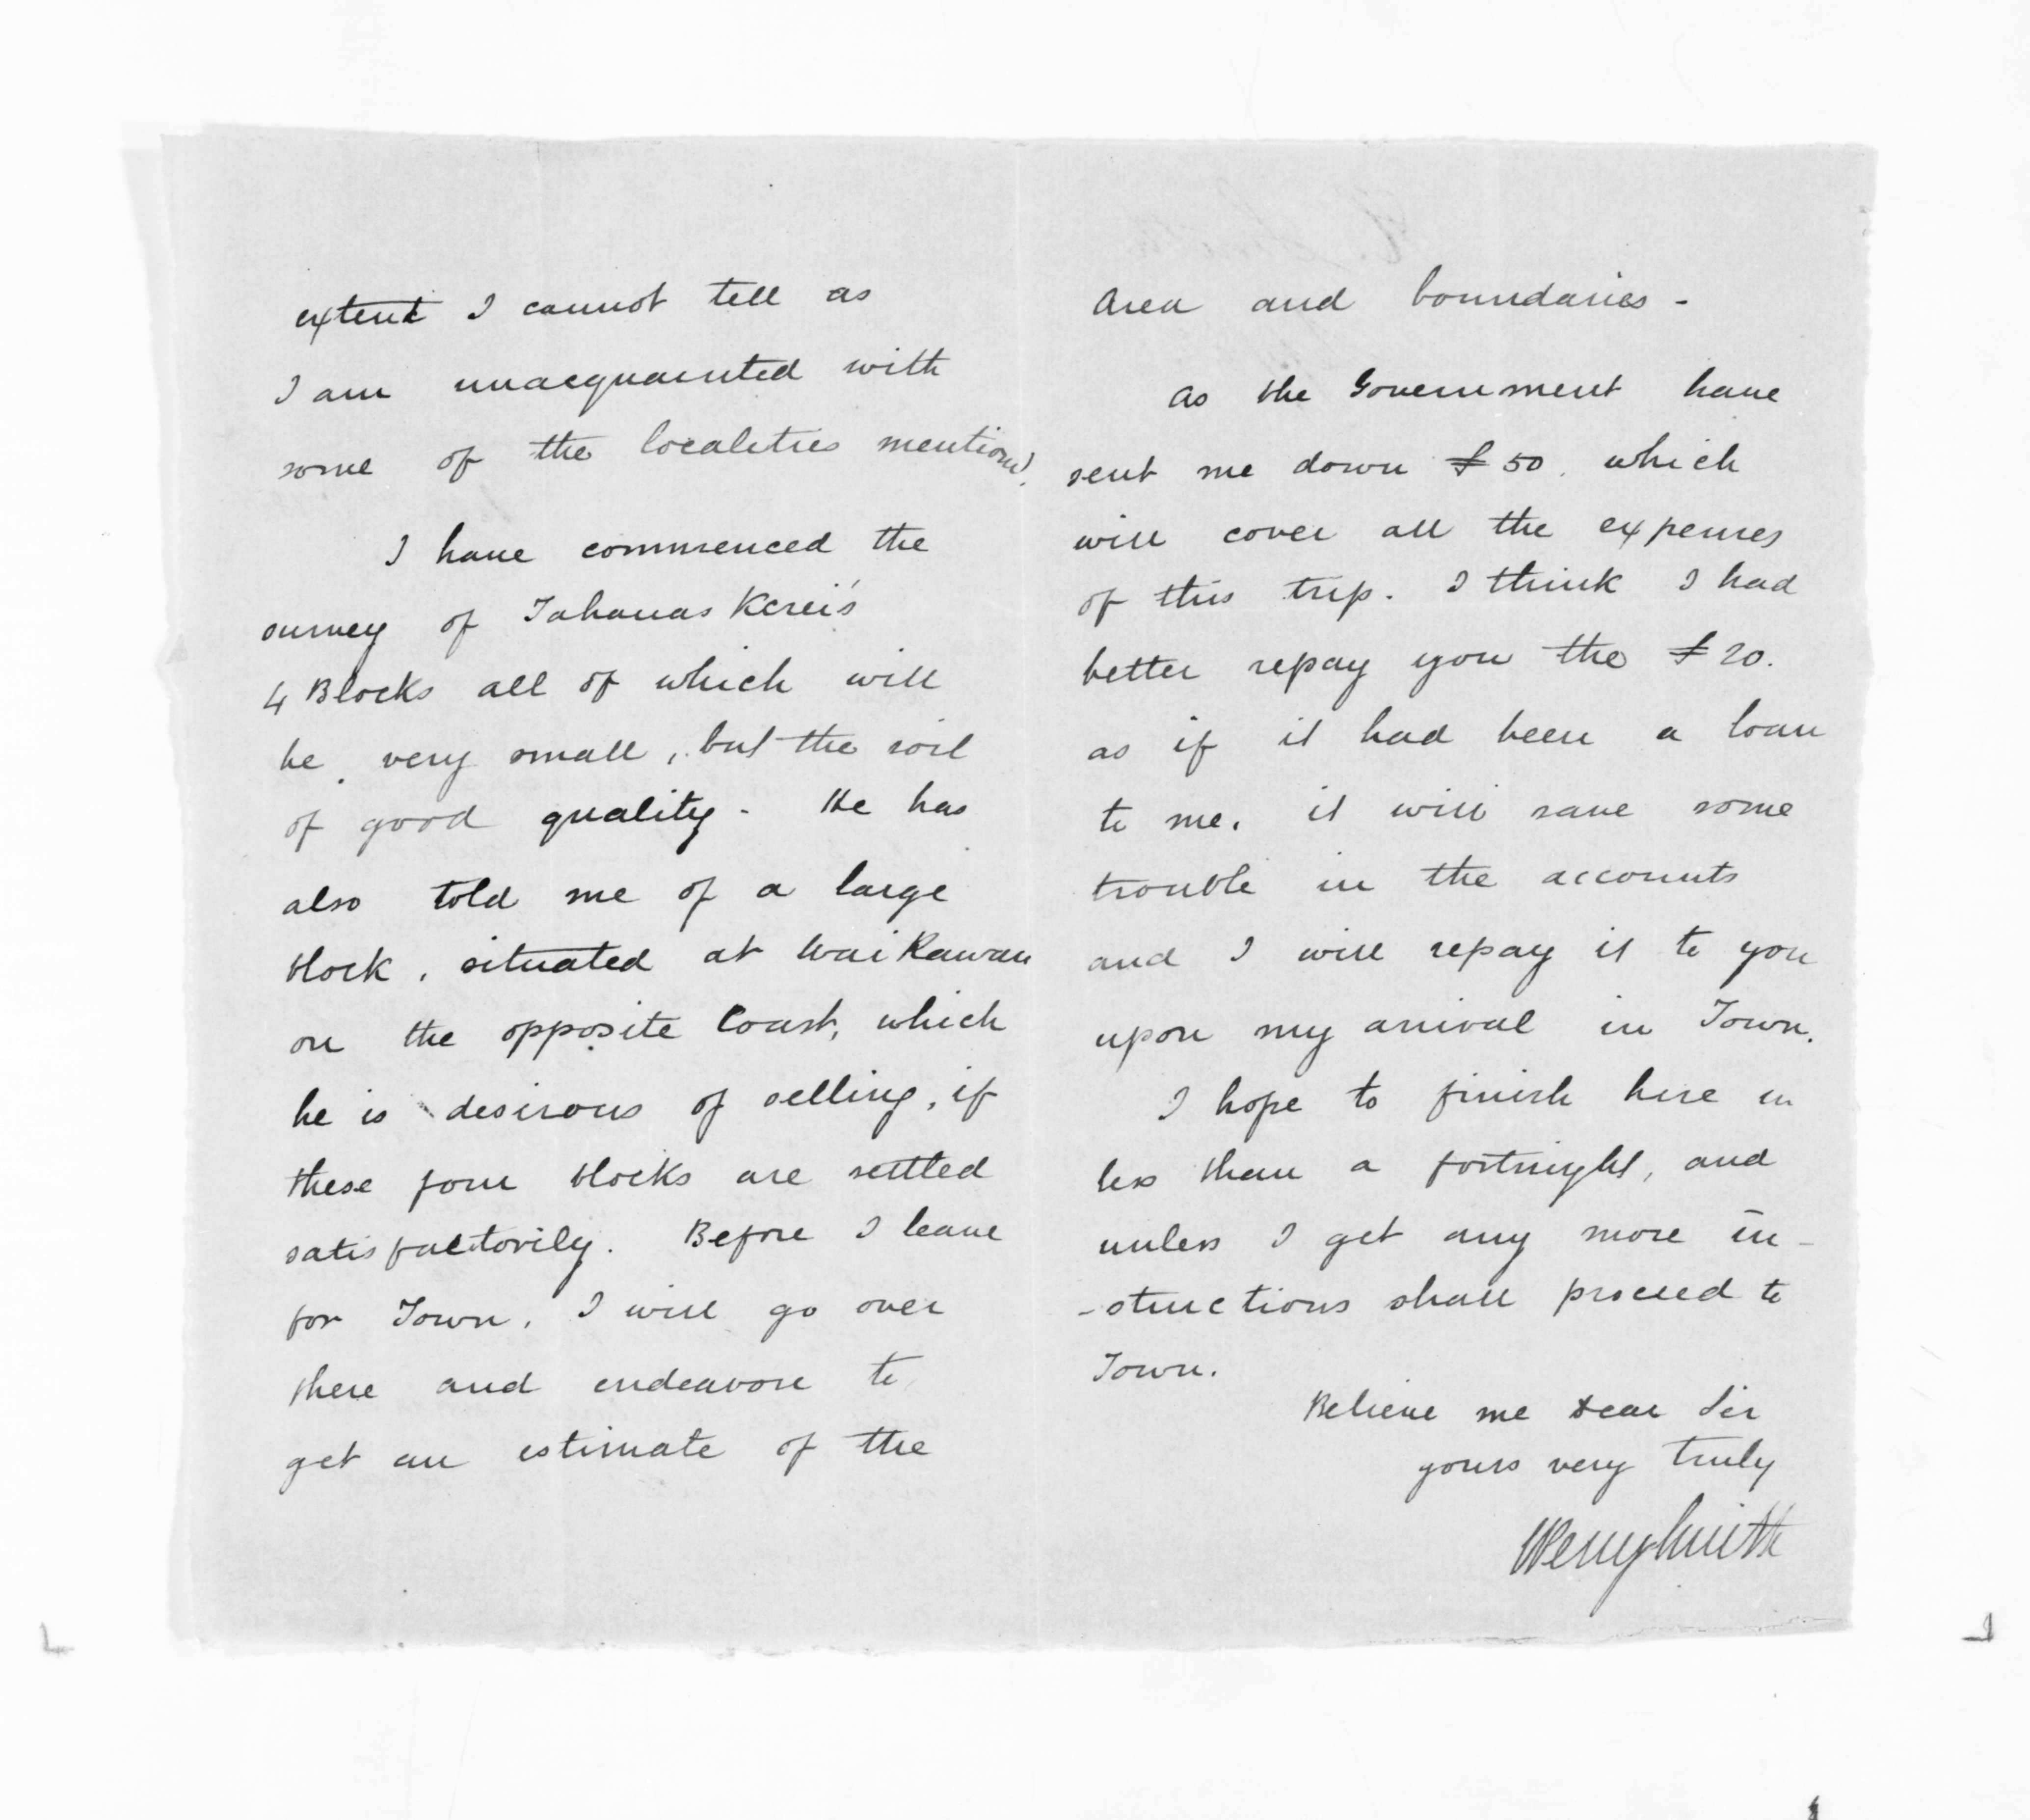 extent I cannot tell as
I am unacquainted with
some of the localities mentioned.
I have commenced the
survey of Tahanas Kerei's
4 Blocks all of which will
be very small, but the soil
of good quality - He has
also told me of a large
block, situated at
on the opposite Coast, which
he is desirous of selling, if
these four blocks are settled
satisfactorily. Before I leave
for Town, I will go over
there and endeavore to
get an estimate of the
Area and boundaries -
As the Government have
sent me down £50. which
will cover all the expenses
of this trip. I think I had
better repay you the £20.
as if it had been a loan
to me. it will save some
trouble in the accounts
and I will repay it to you
upon my arrival in Town.
I hope to finish here in
less than a fortnight, and
unless I get any more in-
-structions shall proceed to
Town.
Believe me Dear Sir
yours very truly
Smith